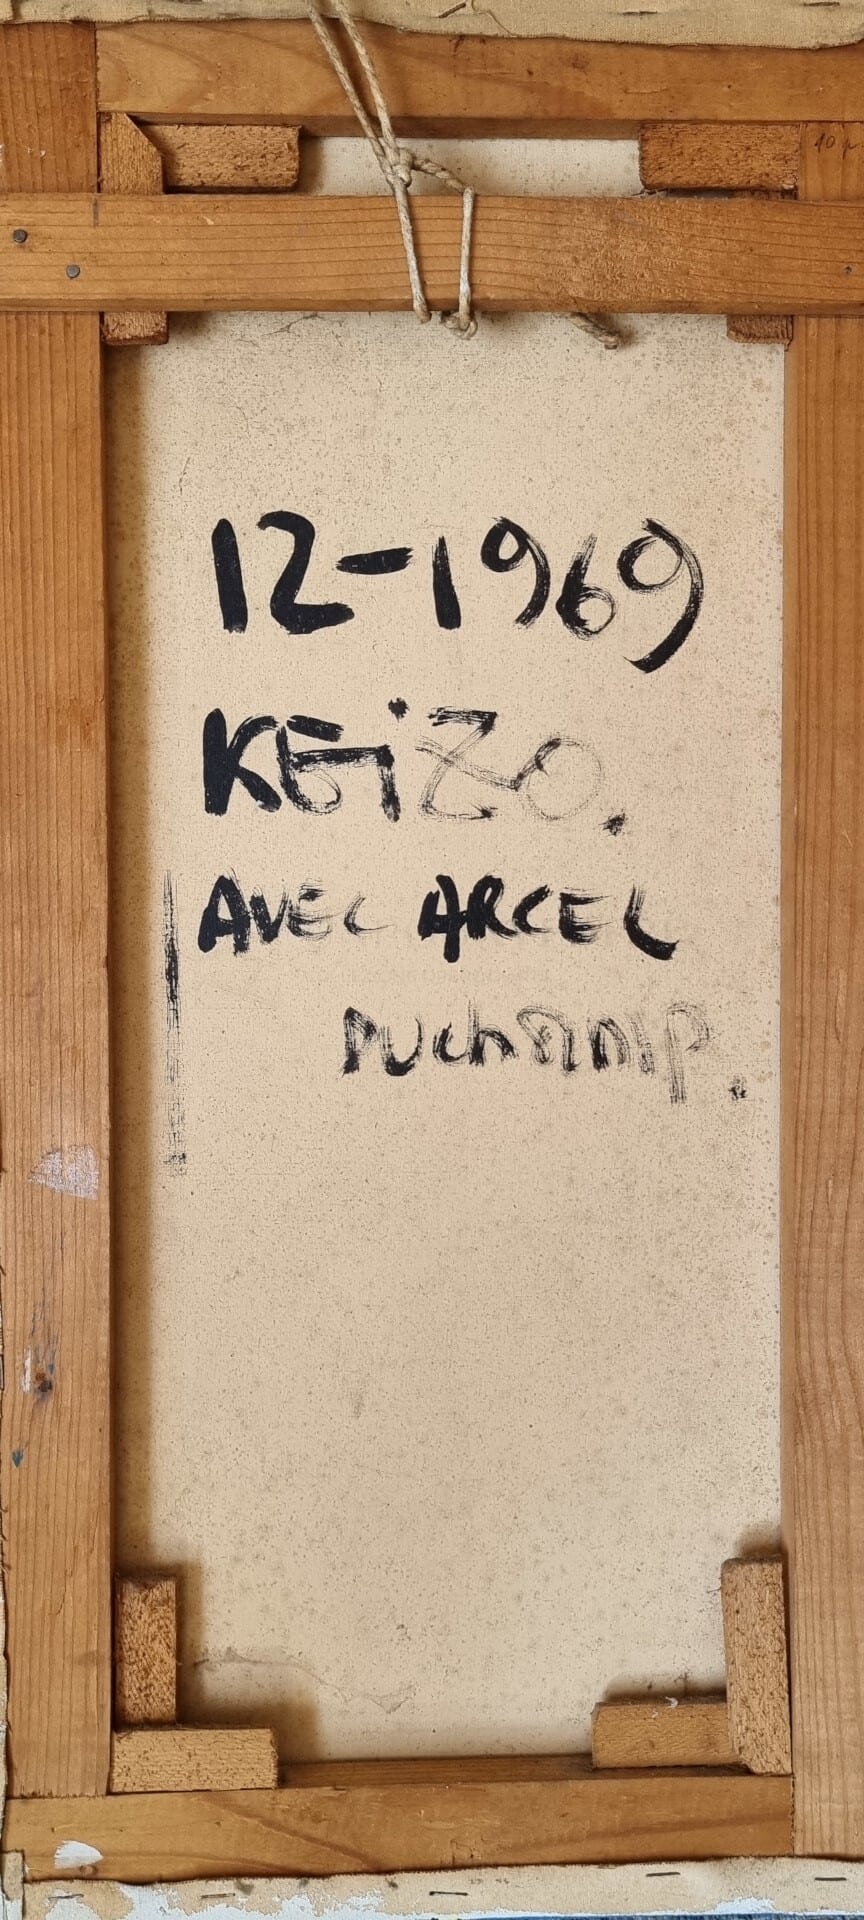 40 P.
12-1969
KEiZO.
AVEC ARCEL
DUCHAMP.